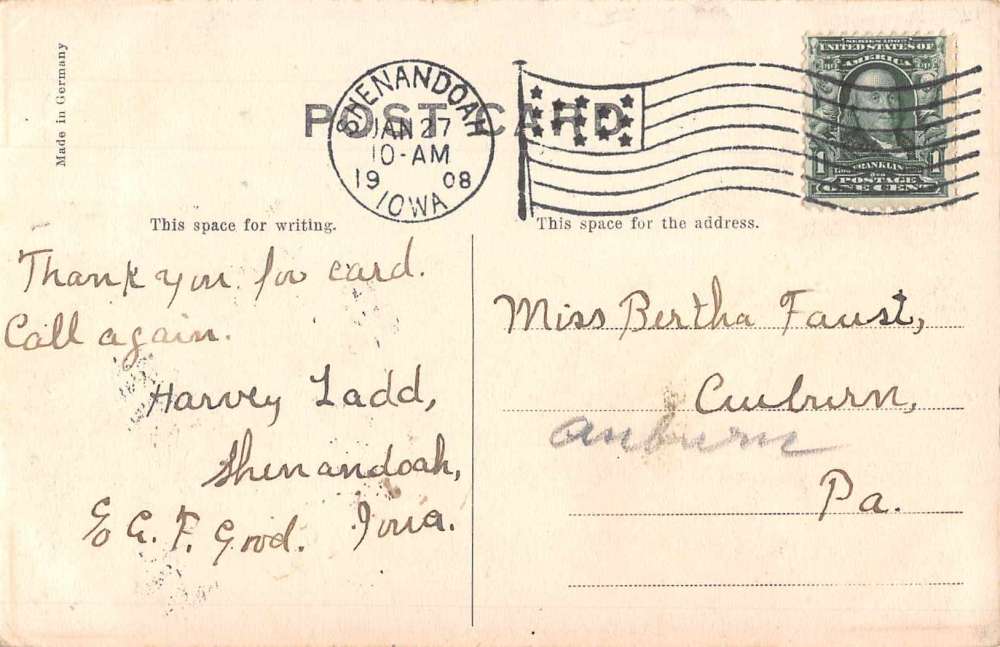 Made in Germany
POST CARD
SHENANDOAH
JAN 27
10-AM
19 08
IOWA
SERIES 1902
UNITED STATES OF
AMERICA
1 FRANKLIN 1
POSTAGE
ONE CENT
This space for writing.
Thank you for card.
Call again.
Harvey Ladd,
Shenandoah,
Iowa.
c/o G. F. Good.
This space for the address.
Miss Bertha Faust,
Auburn,
Auburn
Pa.